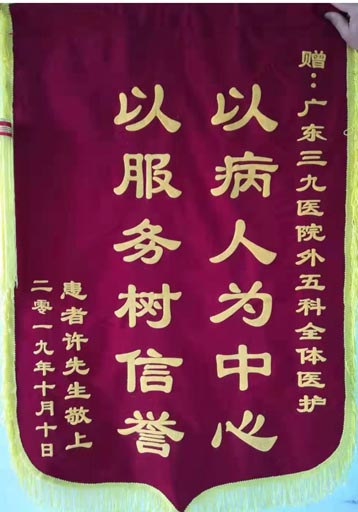 赠：广东三九医院外五科全体医护
以病人为中心
以服务树信誉
患者许先生敬上
二零一九年十月十日